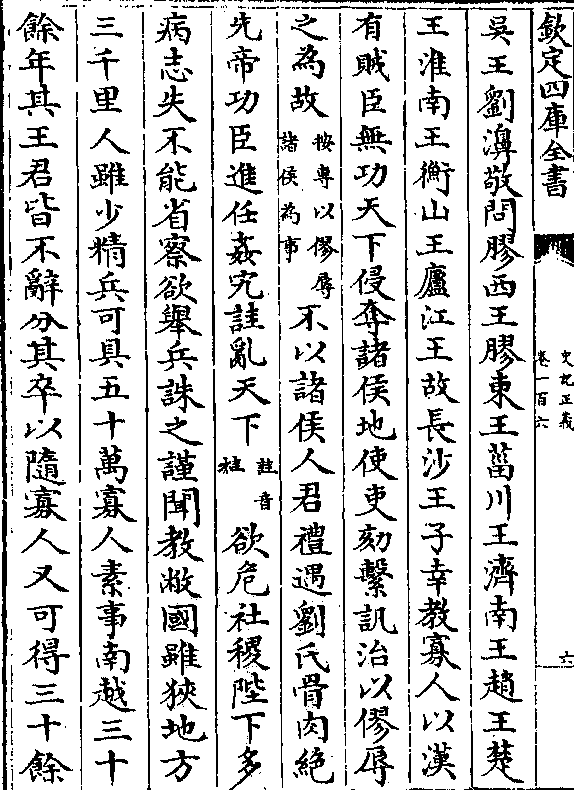 欽定四庫全書
史記正義
卷一百六
六
吳王劉濞敬問膠西王膠東王菑川王濟南王趙王楚
王淮南王衡山王廬江王故長沙王子幸教寡人以漢
有賊臣無功天下侵奪諸侯地使吏劾繫訊治以僇辱
之為故按專以僇辱諸侯為事不以諸侯人君禮遇劉氏骨肉絶
先帝功臣進任姦宄詿亂天下詿音卦欲危社稷陛下多
病志失不能省察欲舉兵誅之謹聞教敝國雖狹地方
三千里人雖少精兵可具五十萬寡人素事南越三十
餘年其王君皆不辭分其卒以隨寡人又可得三十餘